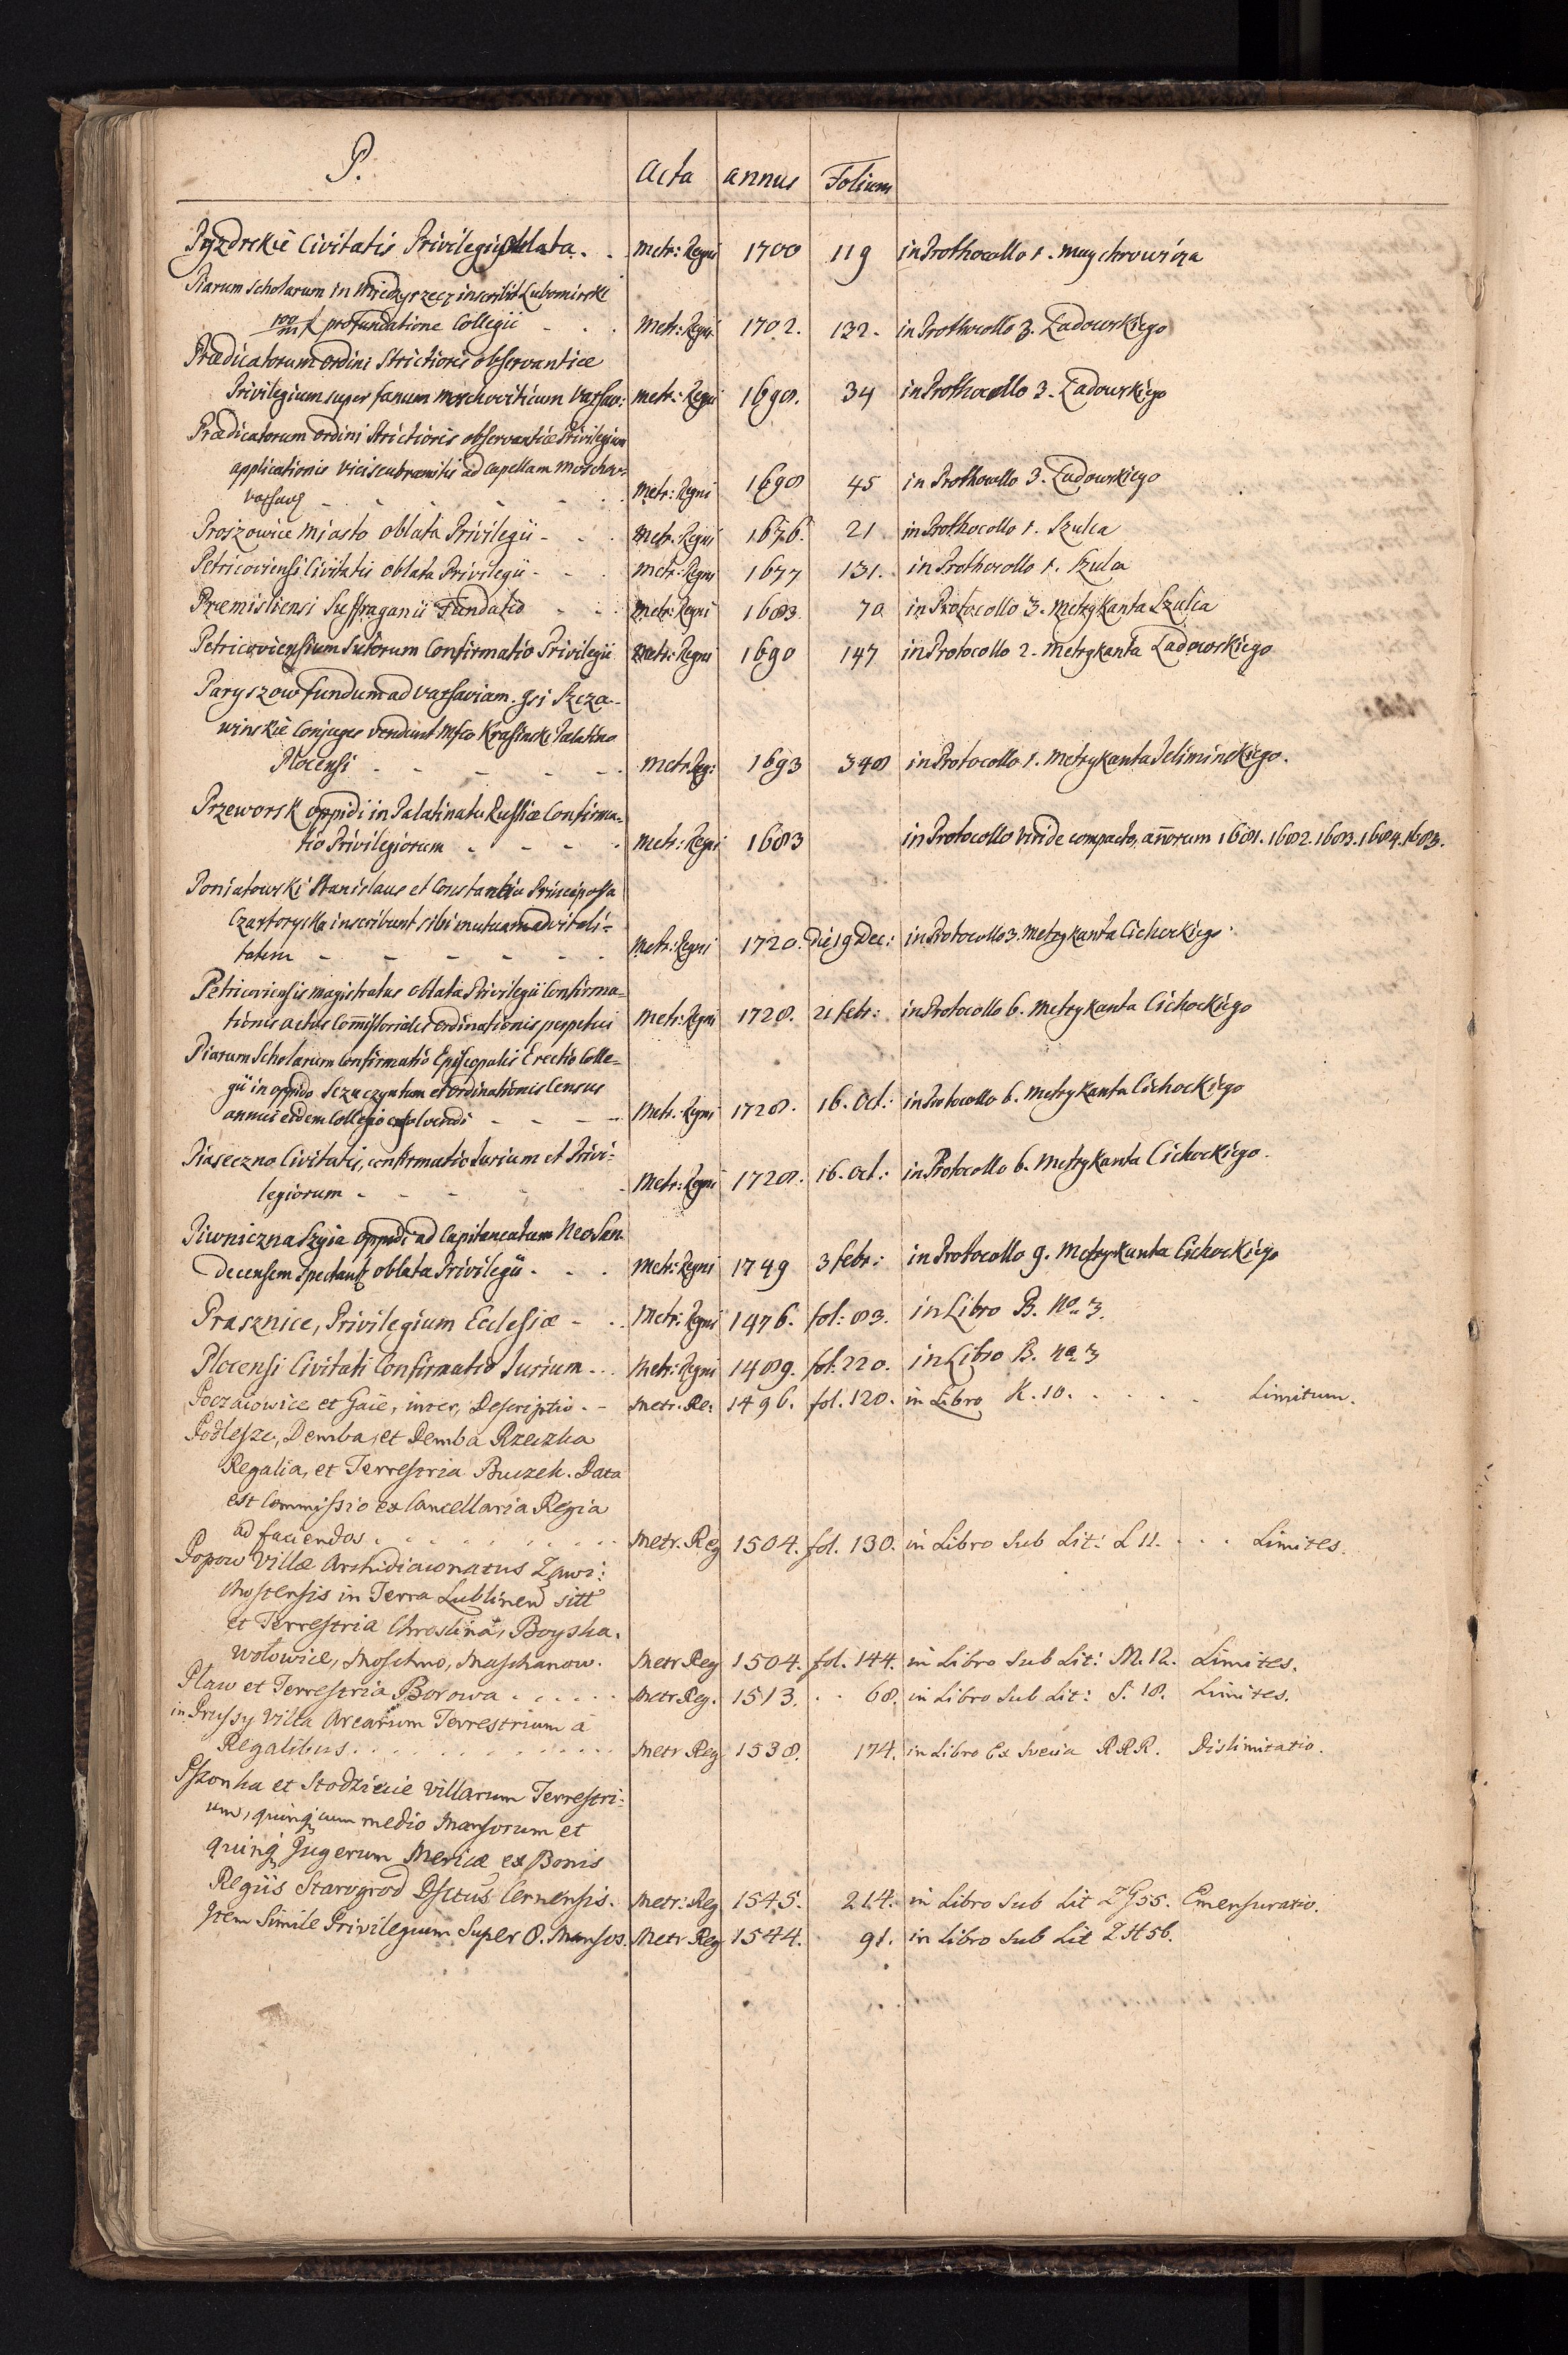 P. Acta annus Folium
Pyzdrskie Civitatis Privilegii Oblata. . . Metr: Regni 1700 119 in Prothocollo 1. Maychrowicza
Piarum Scholarum in Miedzyrzecz inscribit Lubomirski
100/m f pro Fundatione Collegii - . . Metr: Regni 1702. 132. in Prothocollo 3. Zadowskiego
Prædicatorum Ordini Strictioris observantiæ
Privilegium super fanum Moschoviticum Varsav: Metr: Regni 1698. 34 in Prothocollo 3. Zadowskiego
Prædicatorum Ordini Strictioris observantiæ Privilegium
applicationis ad Capellam Moschov:
Metr: Regni 1698 45 in Prothocollo 3. Zadowskiego
Proszowice Miasto Oblata Privilegii - . . Metr: Regni 1676. 21 in Prothocollo 1. Szulca
Petricoviensi Civitatis oblata Privilegii - . . Metr: Regni 1677 131. in Prothocollo 1. Szulca
Præmisliensi Suffraganii Fundatio - . . Metr: Regni 1683. 70 in Protocollo 3. Metrykanta Szulca
Petricoviensium Sutorum Confirmatio Privilegii Metr: Regni 1690 147 in Protocollo 2. Metrykanta Zadowskiego
Paryszow fundum ad Varsaviam. Gsi Szcza-
winskie Conjuges vendunt Mfco Krasinski Palatino
Plocensi - - - - - . Metr. Reg: 1693 348 in Protocollo 1. Metrykanta Jeliminskiego.
Przeworsk oppidi in Palatinatu Russiæ Confirma-
tio Privilegiorum - - - - . Metr: Regni 1683 in Protocollo viride compacto, añorum 1681. 1682. 1683. 1684. 1683.
Poniatowski Stanislaus et Constantia Principessa
Czartoryska inscribunt sibi mutuam advitali-
tatem - - - - - . Metr: Regni 1720. die 19 Dec: in Protocollo 3. Metrykanta Cichockiego
Petricoviensis magistratus oblata Privilegii Confirma-
tionis actus Comissorialis Ordinationis perpetui Metr: Regni 1728. 21 febr: in Protocollo 6. Metrykanta Cichockiego
Piarum Scholarum Confirmatio Episcopalis Erectio Colle-
gii in oppido Szczuczyn tum et Ordinationis Census
annui eidem Collegio exolvendi - - - - Metr: Regni 1728. 16. Oct: in Protocollo 6. Metrykanta Cichockiego
Piaseczno Civitatis, confirmatio Jurium et Privi-
legiorum - - - - - Metr: Regni 1728. 16. Oct: in Protocollo 6. Metrykanta Cichockiego.
Piwniczna Szyia Oppidi ad Capitaneatum Neo San-
decensem spectantis oblata Privilegii - . . Metr: Regni 1749 3 febr: in Protocollo 9. Metrykanta Cichockiego
Prasznice, Privilegium Ecclesiæ - . . Metr: Regni 1476. fol: 83. in Libro B. No 3.
Plocensi Civitati Confirmatio Jurium . . . Metr: Regni 1489. fol: 220. in Libro B. no 3
Poczaiowice et Gaie, inter, Descriptio . - Metr. Re: 1496. fol. 120. in Libro K. 10. . . . . Limitum.
Podlesze, Demba, et Demba Rzeczka
Regalia, et Terrestria Buczek. Data
est Commissio ex Cancellaria Regia
ad faciendos . . . . . . . . Metr. Reg 1504. fol. 130. in Libro Sub Lit: L 11. . . . Limites.
Popow Villæ Archidiaconatus Zawi:
chostensis in Terra Lublinen sitt
et Terrestria Chroslina, Boyska.
Wolowice, Moschno, Maschanow. Metr Reg 1504. fol. 144. in Libro Sub Lit: M. 12. Limites.
Plaw et Terrestria Borowa . . . . . . Metr Reg. 1513. . . 68. in Libro Sub Lit: S. 18. Limites.
in Prussy Villa Arearum Terrestrium à
Regalibus . . . . . . . . . . Metr Reg. 1538. 174. in Libro Ex Svecia RRR. Dislimitatio.
Pszonka et Stodzieie Villarum Terrestri:
um, quinq cum medio Mansorum et
quinq Jugerum Mericæ ex Bonis
Regiis Starogrod Dsctûs Cernensis. Metr: Reg 1545. 214. in Libro Sub Lit ZG55. Emensuratio.
Item Simile Privilegium Super 8. Mansos. Metr Reg 1544. 91. in Libro Sub Lit ZH56.